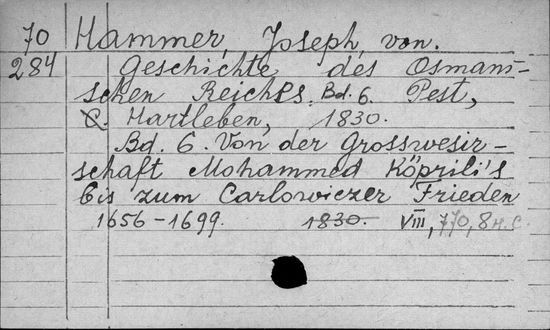 70 Hammer, Joseph, von.
284 Geschichte des Osmani-
schen Reiches. Bd. 6. Pest,
C. Hartleben, 1830.
Bd. 6. Von der Grosswesir-
schaft Mohammed Köprili's
bis zum Carlowiczer Frieden
1656-1699. 1830. VIII, 770, 8 н.с.